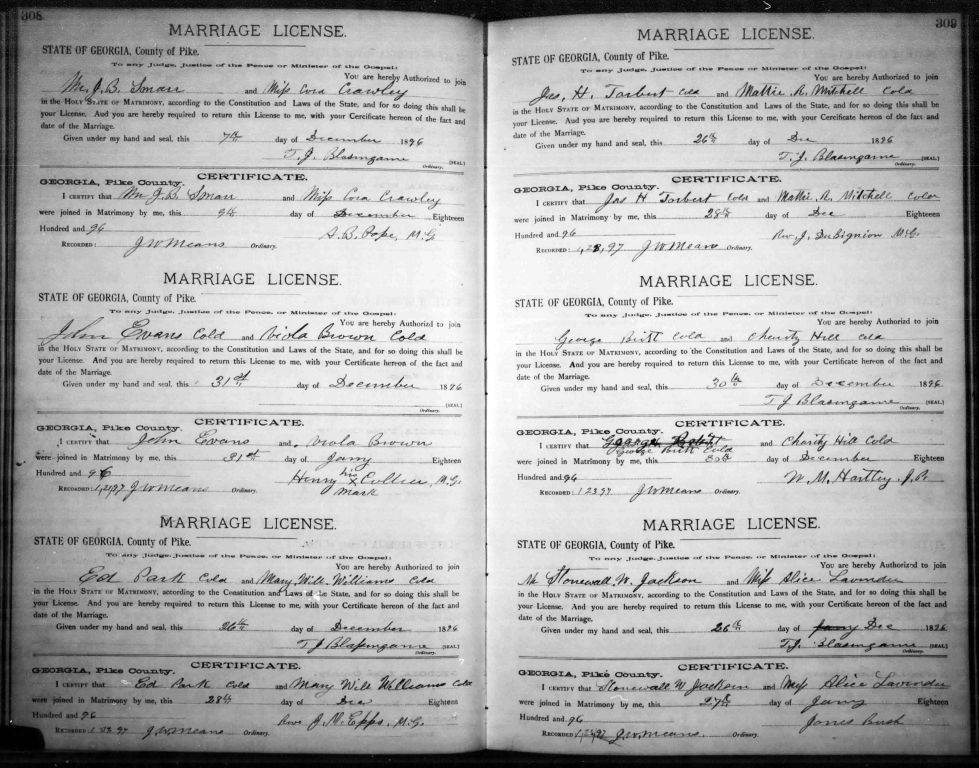 308
MARRIAGE LICENSE.
STATE OF GEORGIA, County of Pike.
To any Judge, Justice of the Peace or Minister of the Gospel:
You are hereby Authorized to join
Mr. J. B. Smarr and Miss Cora Crawley
in the HOLY STATE OF MATRIMONY, according to the Constitution and Laws of the State, and for so doing this shall be
your License. And you are hereby required to return this License to me, with your Certificate hereon of the fact and
date of the Marriage.
Given under my hand and seal, this 7th day of December 1896
T. J. Blasingame (SEAL)
Ordinary.
CERTIFICATE.
GEORGIA, Pike County.
I CERTIFY that Mr J. B. Smarr and Miss Cora Crawley
were joined in Matrimony by me, this 9th day of December Eighteen
Hundred and 96 A. B. Pope, M.G.
RECORDED: J W Means Ordinary.
MARRIAGE LICENSE.
STATE OF GEORGIA, County of Pike.
To any Judge, Justice of the Peace, or Minister of the Gospel:
You are hereby Authorized to join
John Evans Cold and Viola Brown Cold
in the HOLY STATE OF MATRIMONY, according to the Constitution and Laws of the State, and for so doing this shall be
your License. And you are hereby required to return this License to me, with your Certificate hereon of the fact and
date of the Marriage.
Given under my hand and seal, this 31st day of December 1896
(SEAL)
Ordinary.
CERTIFICATE.
GEORGIA, Pike County.
I CERTIFY that John Evans and Viola Brown
were joined in Matrimony by me, this 31st day of Jany Eighteen
Hundred and 96 Henry his x mark Collier, M.G.
RECORDED J W Means Ordinary.
MARRIAGE LICENSE.
STATE OF GEORGIA, County of Pike.
To any Judge, Justice of the Peace, or Minister of the Gospel:
You are hereby Authorized to join
Ed Park Cold and Mary Will Williams Cold
in the HOLY STATE OF MATRIMONY, according to the Constitution and Laws of the State, and for so doing this shall be
your License. And you are hereby required to return this License to me, with your Certificate hereon of the fact and
date of the Marriage.
Given under my hand and seal, this 26th day of December 1896
T J Blasingame (SEAL)
Ordinary.
CERTIFICATE.
GEORGIA, Pike County.
I CERTIFY that Ed Park Cold and Mary Will Williams Cold
were joined in Matrimony by me, this 28th day of Dec Eighteen
Hundred and 96 Rev. J. M. Epps, M.G.
RECORDED 1 23 97 J W Means Ordinary.
309
MARRIAGE LICENSE.
STATE OF GEORGIA, County of Pike.
To any Judge, Justice of the Peace or Minister of the Gospel:
You are hereby Authorized to join
Jas, H. Torbert Cold and Mattie R. Mitchell Cold
in the HOLY STATE OF MATRIMONY, according to the Constitution and Laws of the State, and for so doing this shall be
your License. And you are hereby required to return this License to me, with your Certificate hereon of the fact and
date of the Marriage.
Given under my hand and seal, this 26th day of Dec 1896
T. J. Blasingame (SEAL)
Ordinary.
CERTIFICATE.
GEORGIA, Pike County.
I CERTIFY that Jas H Torbert Cold and Mattie R. Mitchell Color
were joined in Matrimony by me, this 28th day of Dec Eighteen
Hundred and 96 Rev. J. DuBignion M.G.
RECORDED: J W Means Ordinary.
MARRIAGE LICENSE.
STATE OF GEORGIA, County of Pike.
To any Judge, Justice of the Peace, or Minister of the Gospel:
You are hereby Authorized to join
George Britt Cold and Charity Hill Cold
in the HOLY STATE OF MATRIMONY, according to the Constitution and Laws of the State, and for so doing this shall be
your License. And you are hereby required to return this License to me, with your Certificate hereon of the fact and
date of the Marriage.
Given under my hand and seal, this 30th day of December 1896
T J Blasingame (SEAL)
Ordinary.
CERTIFICATE.
GEORGIA, Pike County.
I CERTIFY that George Britt Cold and Charity Hill Cold
were joined in Matrimony by me, this 30th day of December Eighteen
Hundred and 96 W. M. Hartley, J.P.
RECORDED 1 23 97 J W Means Ordinary.
MARRIAGE LICENSE.
STATE OF GEORGIA, County of Pike.
To any Judge, Justice of the Peace, or Minister of the Gospel:
You are hereby Authorized to join
Mr. Stonewall. W. Jackson and Miss Alice Lavinder
in the HOLY STATE OF MATRIMONY, according to the Constitution and Laws of the State, and for so doing this shall be
your License. And you are hereby required to return this License to me, with your Certificate hereon of the fact and
date of the Marriage.
Given under my hand and seal, this 26th day of Jany Dec 1896
T. J. Blasingame (SEAL)
Ordinary.
CERTIFICATE.
GEORGIA, Pike County.
I CERTIFY that Stonewall W Jackson and Miss Alice Lavinder
were joined in Matrimony by me, this 27th day of Jany Eighteen
Hundred and 96 Jones Bush
RECORDED J. W. Means. Ordinary.